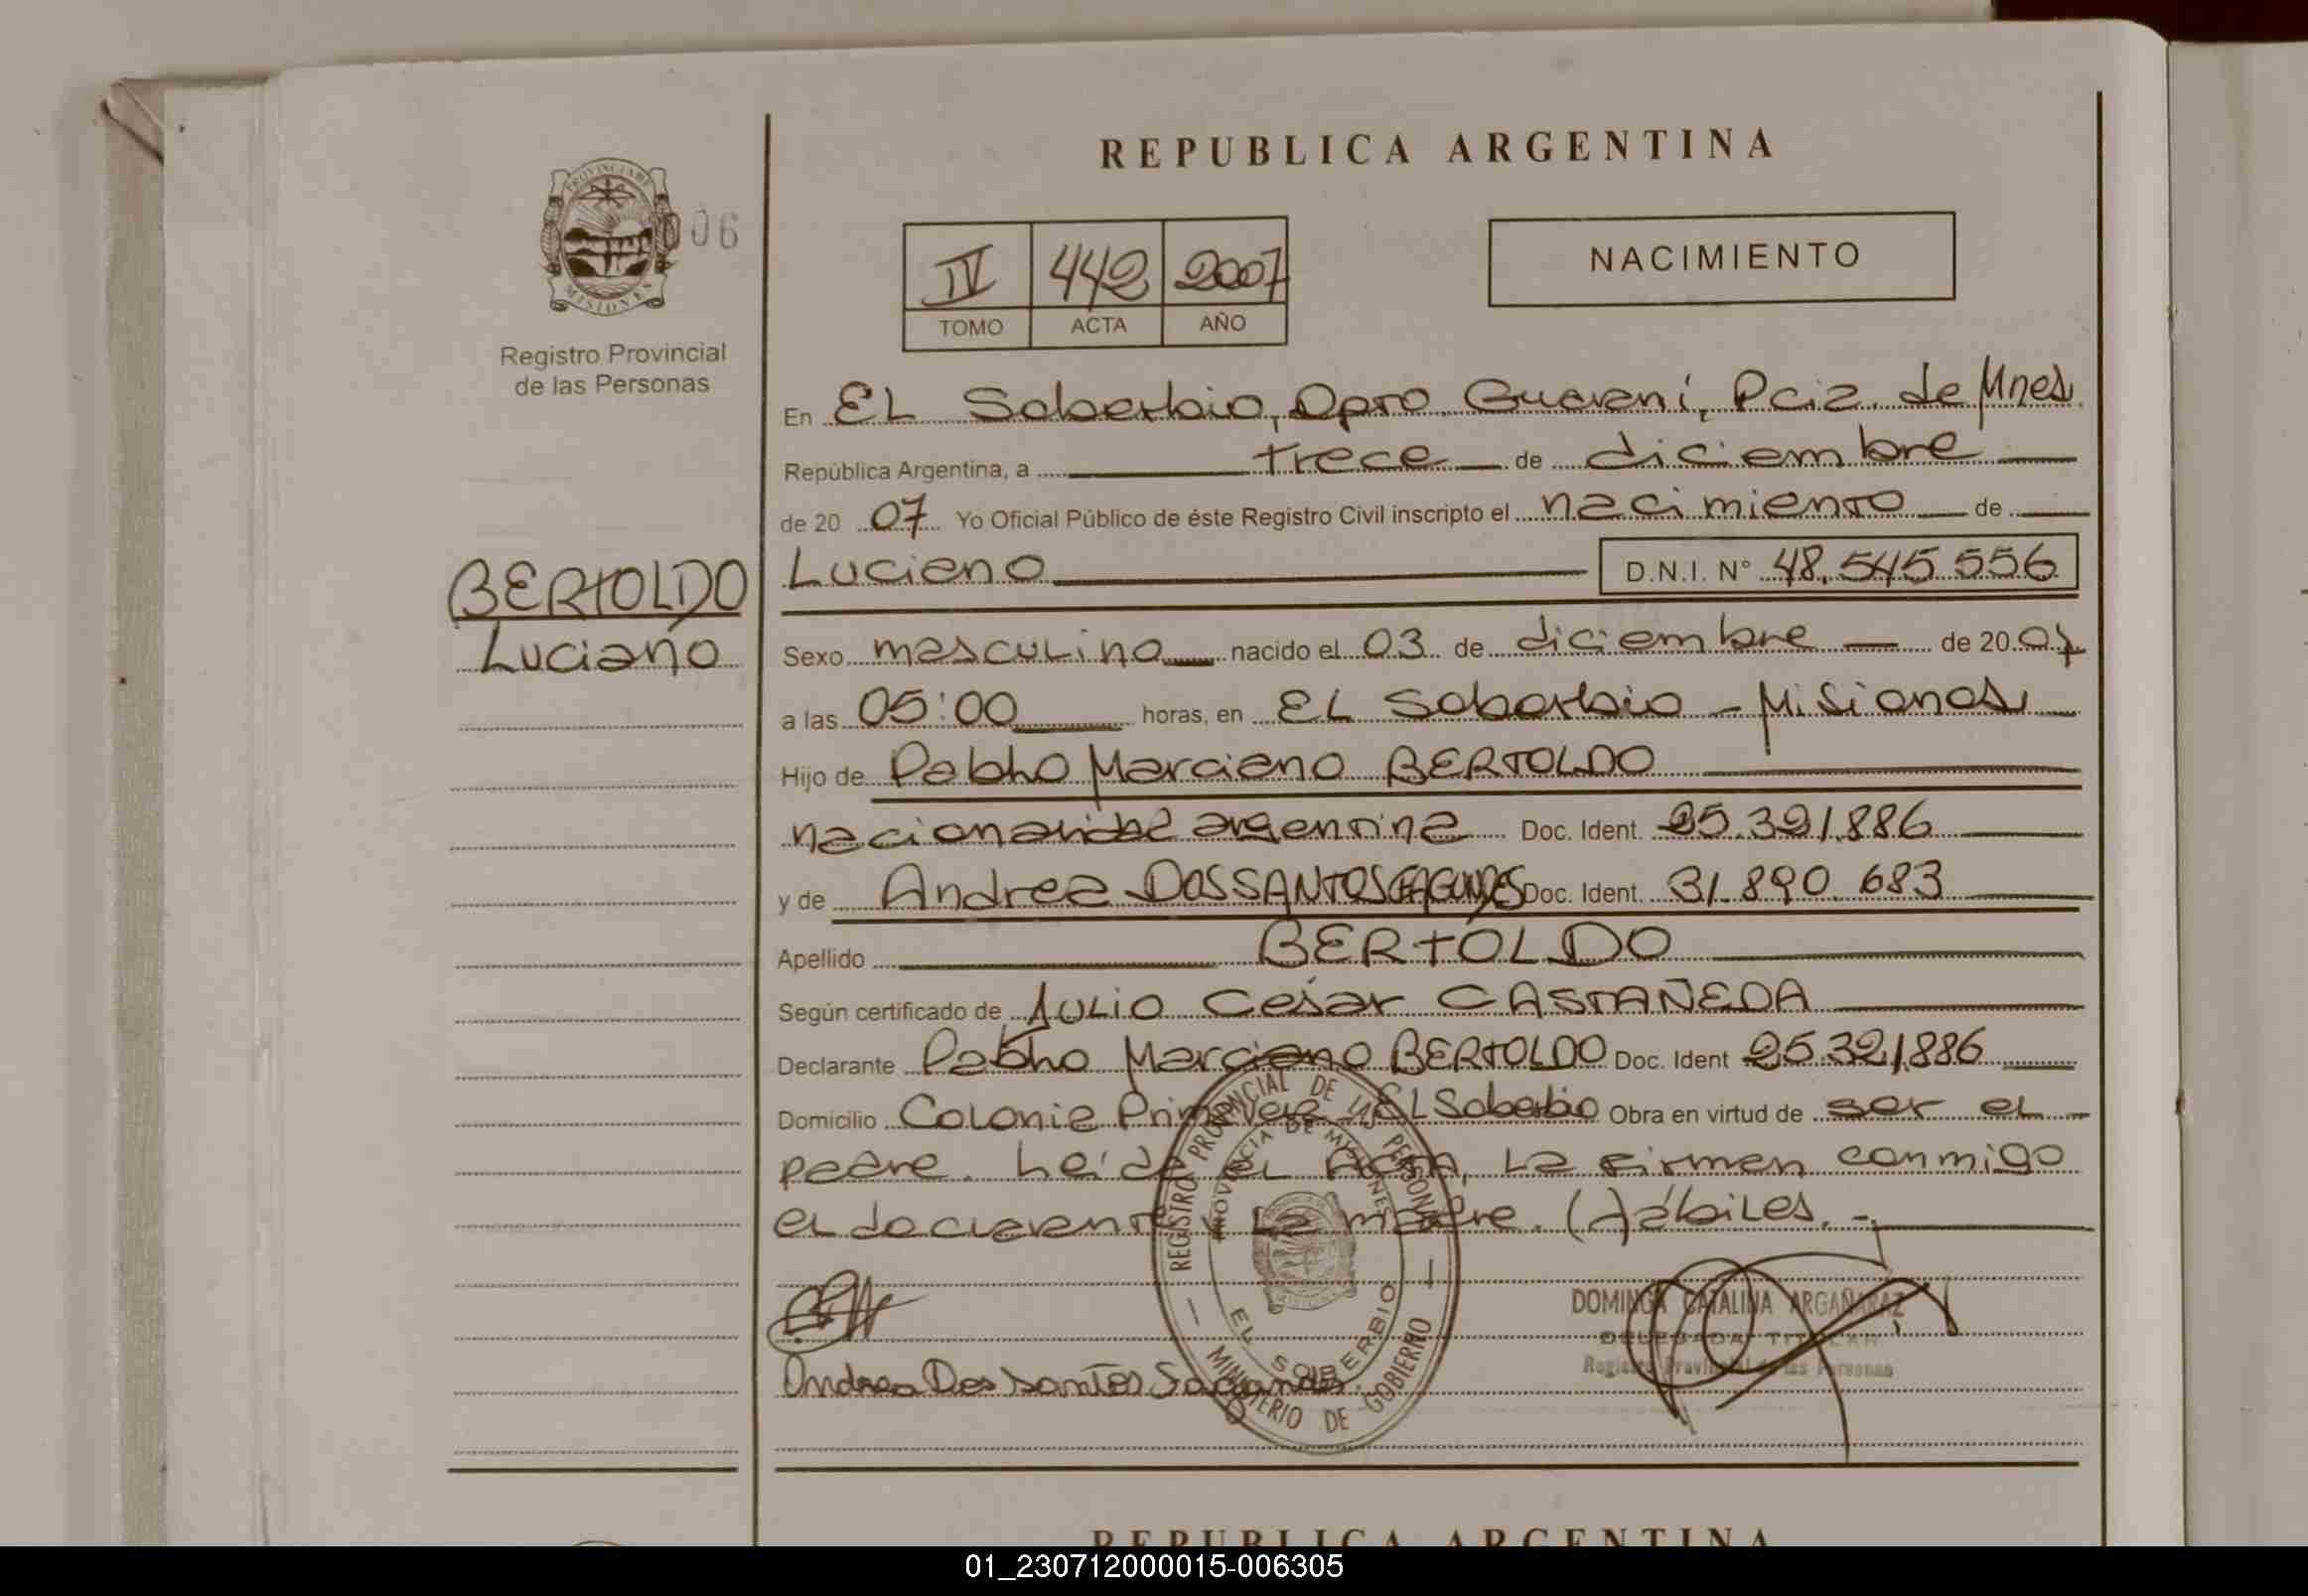 REPUBLICA ARGENTINA
PROVINCIA DE
MISIONES
06
Registro Provincial
de las Personas
IV 442 2007
TOMO ACTA AÑO
NACIMIENTO
En EL Soberbio, Dpto. Guaraní, Pcia. de Mnes.
República Argentina, a trece de diciembre
de 20 07 Yo Oficial Público de éste Registro Civil inscripto el nacimiento de
BERTOLDO
Luciano
Luciano D.N.I. N° 48.545.556
Sexo masculino nacido el 03 de diciembre de 20 07
a las 05:00 horas, en EL Soberbio - Misiones
Hijo de Pablo Marciano BERTOLDO
nacionalidad argentina Doc. Ident. 25.321.886
y de Andrea DOSSANTOS FAGUNDES Doc. Ident. 31.890.683
Apellido BERTOLDO
Según certificado de Julio César CASTAÑEDA
Declarante Pablo Marciano BERTOLDO Doc. Ident 25.321.886
Domicilio Colonia Primavera - EL Soberbio Obra en virtud de ser el
padre. Leída el Acta, la firman conmigo
el declarante y la madre. (H)ábiles. -
REGISTRO PROVINCIAL DE LAS PERSONAS
PROVINCIA DE MISIONES
EL SOBERBIO
MINISTERIO DE GOBIERNO
DOMINGA CATALINA ARGAÑARAZ
DELEGADA TITULAR
Registro Provincial de las Personas
Andrea Dos santos Fagundes
REPUBLICA ARGENTINA
01_230712000015-006305